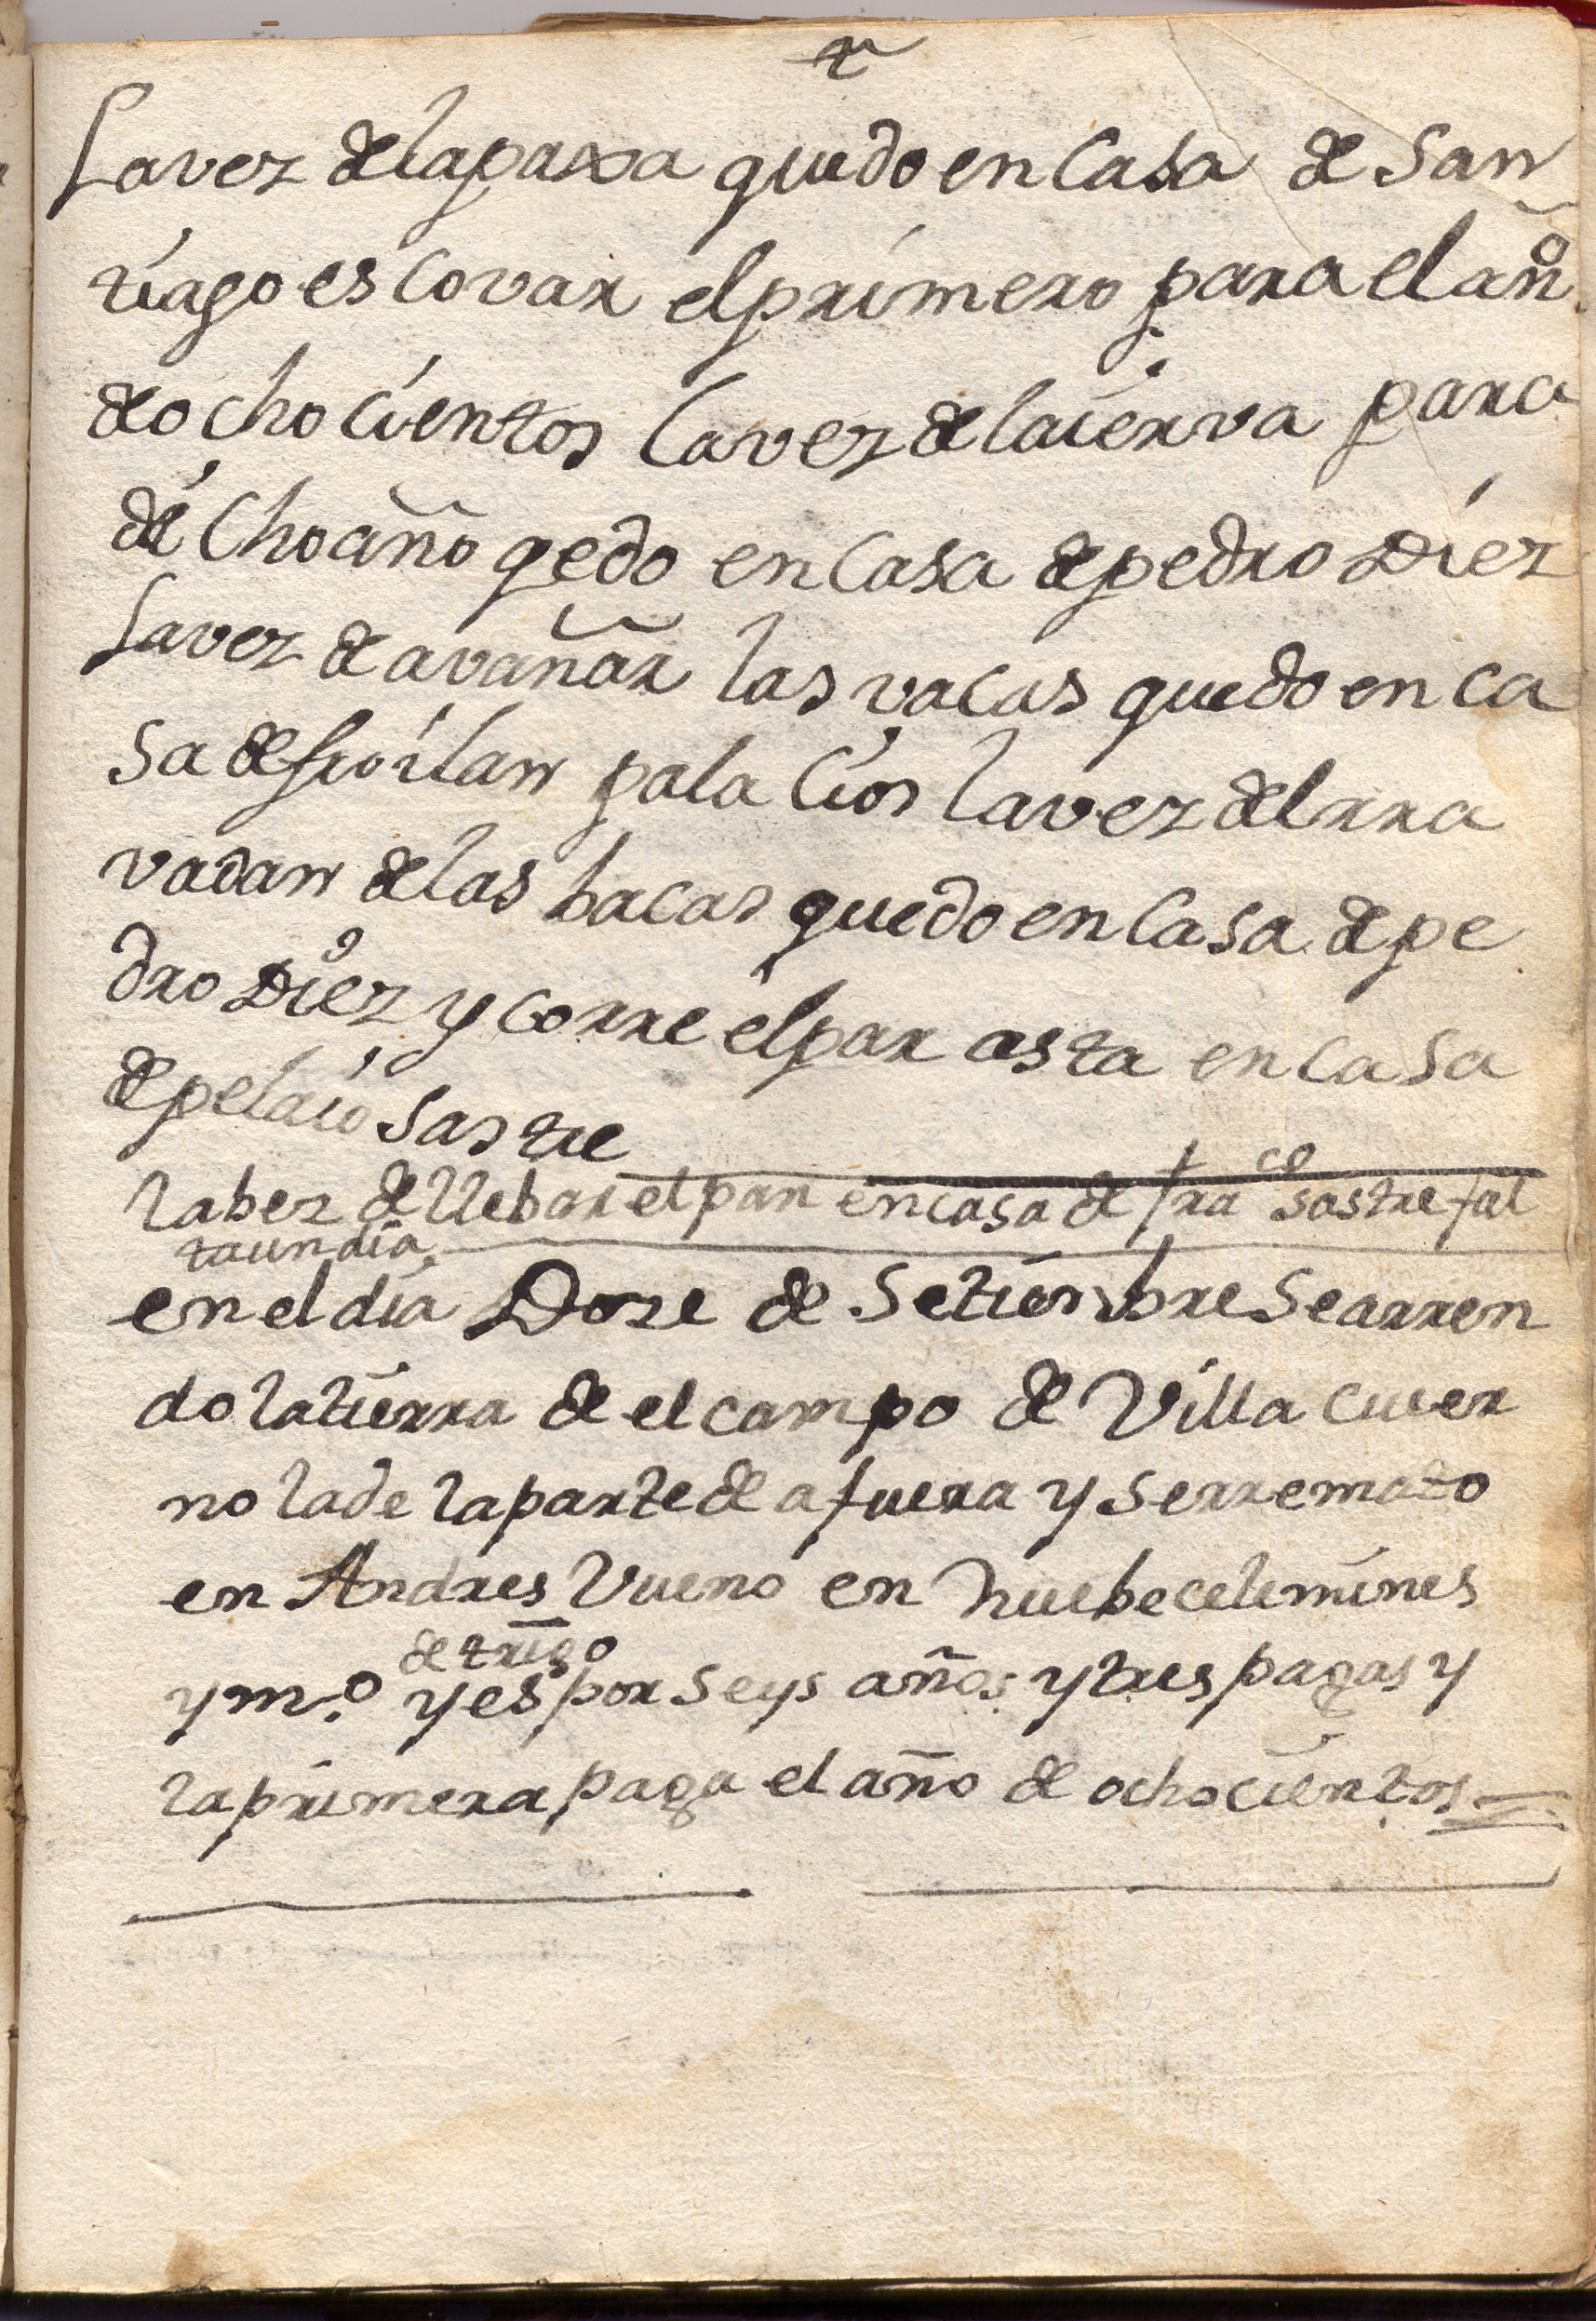 La vez de la paxa quedo en Casa de San
tiago escovar el primero para el año
de ochocientos la vez de la ierva para
dicho año qedo en Casa de pedro Diez
La vez de avañar las vacas quedo en ca
sa de froilan palacios la vez del rra
vadan de las bacas quedo en Casa de pe
dro Diez y corre el par asta en casa
de pelaio Sastre
la bez de llebar el pan en casa de fra co sastre fal
ta un dia
en el dia Doze de Setienbre Se arren
do la tierra de el campo de Villa cuer
no la de la parte de afuera y se rremato
en Andres Vueno en nuebe celemines
de trigo
y m.º y es por Seys años y tres pagas y
la primera paga el año de ochocientos